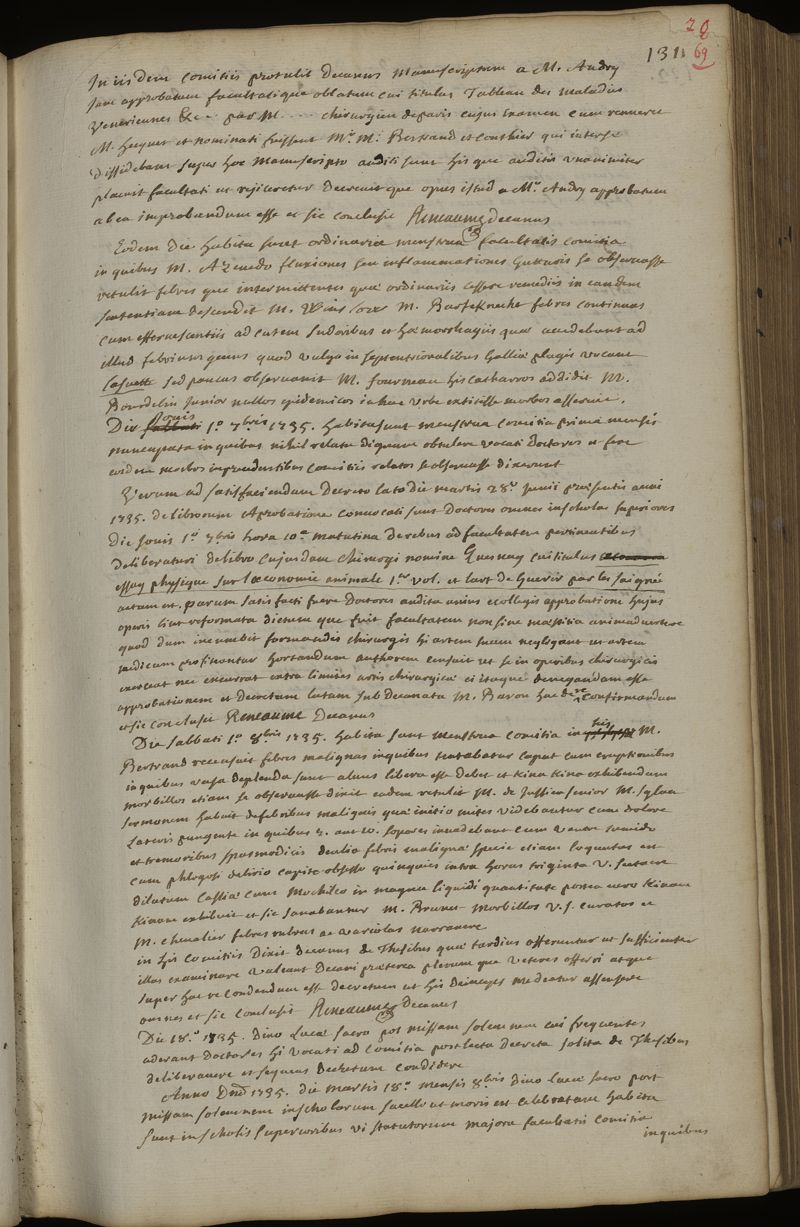 28
131 69
In iisdem Comitiis protulit Decanus Manuscriptum a M. Andry
jam approbatum facultatique oblatum cui titulus Tableau des maladies
Veneriennes &c par M. chirurgien de paris cujus Examen cum
M. hecquet et nominati fuissent Mri. M. Bertrand et qui inter se
dissidebant super hoc Manuscripto auditi sunt his que auditis unanimiter
placuit facultati ut rejiceretur decrevit que opus istud a Mro Andry approbatum
ab ea improbandum esse et sic conclusit Reneaume decanus
Eodem die habita sunt ordinaria menstrua facultatis comitia
in quibus M. Azevedo fluxiones seu inflammationes Gutturis se observasse
retulit febres que intermittentes quae ordinariis cessere remediis in eandem
sententiam descendit M. Winslow M. Barfeknecht febres continuas
cum effervescentiis ad cutem sudoribus et haemorrhagiis quae accedebant ad
illud febrium genus quod vulgo in septentrionalibus Galliae plagis vocant
la suette sed paucas observavit M. fourneau his catharros addidit M.
Bourdelin junior nullos epidemicos in hac urbe extitisse morbos asseruit.
Die Jovis 1o 7bris 1735. habita sunt menstrua Comitia prima mensis
nuncupata in quibus nihil relatu dignum obtulere vocati doctores et fere
eosdem morbos in praecedentibus comitiis relatos se observasse dixerunt
Verum ad satisfaciendum Decreto lato die martis 28a Junii praesentis anni
1735. de librorum Approbatione convocati sunt Doctores omnes in scholas superiores
Die Jovis 1o 7bris hora 10a matutina de rebus ad facultatem pertinentibus
deliberaturi de libro cujusdam chirurgi nomine Quesnay cui titulus
essay physique sur l'oeconomie animale 1er vol. et l'art de Guerir par la saignée
actum est. parum satisfacti fuere Doctores audita unius e collegis approbatione hujus
operis licet reformata dictum que fuit facultatem non sine maestitia animadvertere
quod dum incumbit formandis chirurgis hi artem suam negligant ut artem
medicam profiteantur hortandum authorem censuit ut se in operibus chirurgicis
exerceat nec excurrat extra limites artis chirurgicae ei itaque denegandam esse
approbationem et Decretum latum sub decanatu M. Baron hac de re confirmandum
et sic conclusit Reneaume Decanus
Die sabbati 1o 8bris 1735. habita sunt menstrua Comitia in his M.
Bertrand recensuit febres malignas in quibus caput cum eruptionibus
in quibus vasa deplenda sunt alvus libera esse debet et Kina Kina exhibendum
morbillos etiam se observasse dixit eadem retulit M. de Jussieu senior M. sylva
sermonem habuit de febribus malignis quae initio mites videbantur cum dolore
lateris pungente in quibus 8. aut 10. sopores invadebant cum ventre tumido
et tremoribus spasmodicis de alia febris malignae specie etiam loquutus est
cum phlogosi delirio capite obsesso quinquies intra horas triginta V. secta est
dilutum Cassiae cum Mochlico in magna liquidi quantitate postea vero Kinam
Kinam exhibuit et sic sanabantur M. Brunet Morbillos V. S. curatos et
M. chevalier febres rubras ac variolas narravere
in his Comitiis dixit decanus de Thesibus quae tardius offeruntur ut sufficienter
illas examinare valeant Decani praeterea plerum que veteres offerri atque
super hac re condendum esse decretum ut his deinceps medeatur assensere
omnes et sic conclusit Reneaume Decanus
Die 18o 1735. Divo Lucae sacro post missam solemnem cui frequentes
aderant Doctores hi vocati ad Comitia post lecta decreta solita de Thesibus
deliberavere et sequens Decretum condidere
Anno Dni 1735. die martis 18a mensis 8bris divo lucae sacro post
missam solemnem in scholarum sacello ut moris est celebratam habita
sunt in scholis superioribus vi statutorum majora facultatis Comitia
in quibus